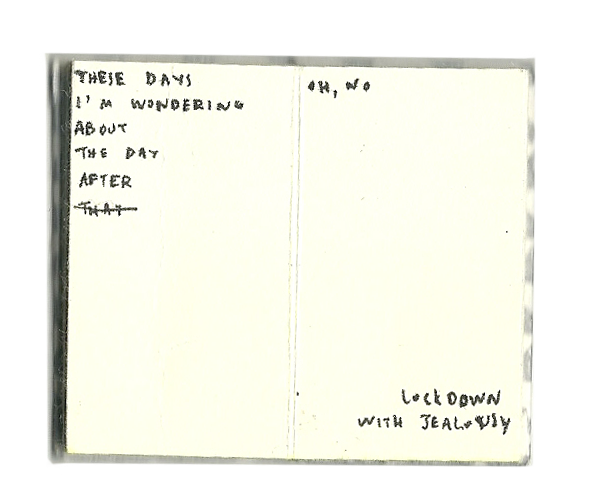 THESE DAYS
I'M WONDERING
ABOUT
THE DAY
AFTER
THAT
OH, NO
LOCKDOWN
WITH JEALOUSY